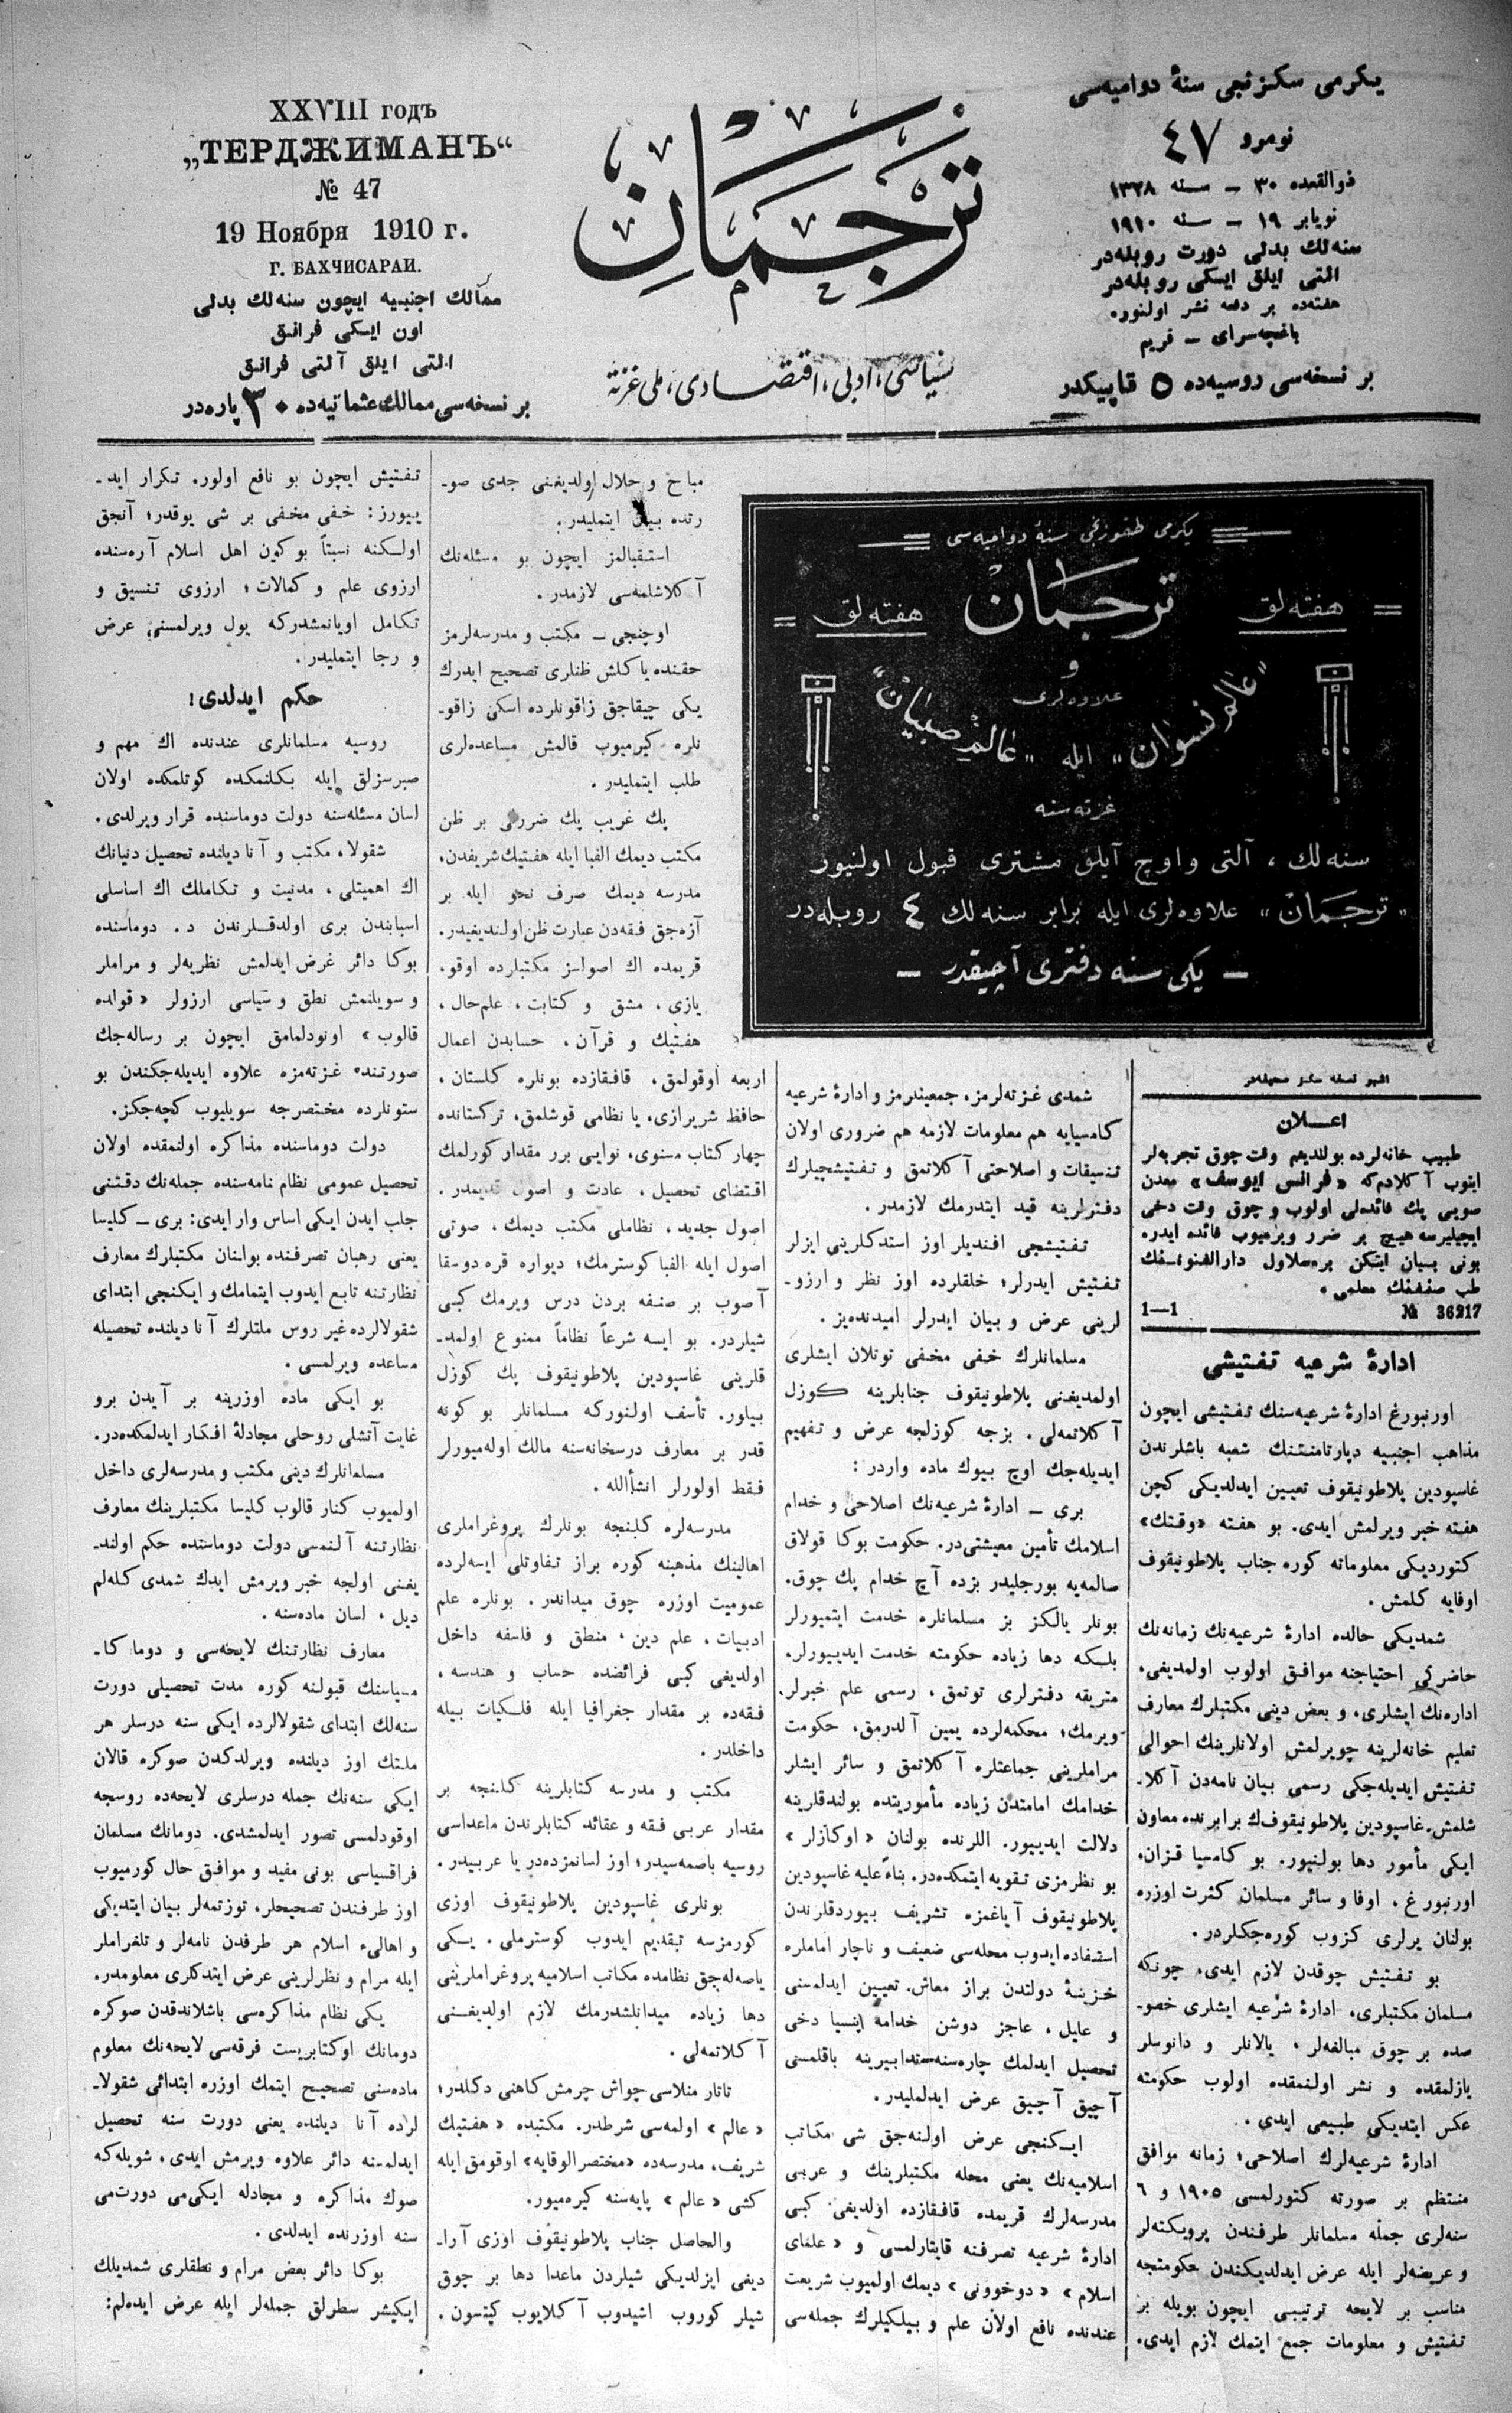 يكرمى سكزنجى سنۀ دواميه‌سى
نومرو ٤٧
ذوالقعده ٣٠ — سنه ١٣٢٨
نويابر ١٩ — سنه ١٩١٠
سنه‌لك بدلى دورت روبله‌در
التى ايلق ايكى روبله‌در
هفته‌ده بر دفعه نشر اولنور.
باغچه‌سراى — قريم
بر نسخه‌سى روسيه‌ده ٥ قاپيكدر
ترجمان
سياسى، ادبى، اقتصادى، ملى غزته
XXVIII годъ
„ТЕРДЖИМАНЪ“
№ 47
19 Ноября 1910 г.
Г. БАХЧИСАРАИ.
ممالك اجنبيه ايچون سنه‌لك بدلى
اون ايكى فرانق
التى ايلق آلتى فرانق
بر نسخه‌سى ممالك عثمانيه‌ده ٣٠ پاره‌در
يكرمى طقوزنجى سنۀ دواميه‌سى
هفته‌لق ترجمان هفته‌لق
و
علاوه‌لرى
„عالم نسوان“ ايله „عالم صبيان“
غزته‌سنه
سنه‌لك، آلتى و اوچ آيلق مشترى قبول اولنيور
„ترجمان“ علاوه‌لرى ايله برابر سنه‌لك ٤ روبله‌در
— يكى سنه دفترى آچيقدر —
اشبو نسخه سكز صحيفه‌در
اعــــلان
طبيب خانه‌لرده بولنديغم وقت چوق تجربه‌لر
ايتوب آكلادم‌كه «فرانس ايوسف» معدن
صويى پك فائده‌لى اولوب و چوق وقت دخى
ايچيليرسه هيچ بر ضرر ويرميوب فائده ايدر.
بونى بيان ايتكن
طب صنفنك معلمى.
№ 36217 1—1
ادارۀ شرعيه تفتيشى
اورنبورغ ادارۀ شرعيه‌سنك تفتيشى ايچون
مذاهب اجنبيه دپارتامنتنك شعبه باشلرندن
غاسپودين پلاطونيقوف تعيين ايدلديكى كچن
هفته خبر ويرلمش ايدى. بو هفته «وقتك»
كتورديكى معلوماته كوره جناب پلاطونيقوف
اوفايه كلمش.
شمديكى حالده ادارۀ شرعيه‌نك زمانه‌نك
حاضركى احتياجنه موافق اولوب اولمديغى،
اداره‌نك ايشلرى، و بعض دينى مكتبلرك معارف
تعليم خانه‌لرينه چويرلمش اولانلرينك احوالى
تفتيش ايديله‌جكى رسمى بيان نامه‌دن آكلا‌ـ
شلمش. غاسپودين پلاطونيقوف‌ك برابرنده معاون
ايكى مأمور دها بولنيور. بو كامسيا قزان،
اورنبورغ، اوفا و سائر مسلمان كثرت اوزره
بولنان يرلرى كزوب كوره‌جكلردر.
بو تفتيش چوقدن لازم ايدى، چونكه
مسلمان مكتبلرى، ادارۀ شرعيه ايشلرى خصوـ
صده بر چوق مبالغه‌لر، يالانلر و دانوسلر
يازلمقده و نشر اولنمقده اولوب حكومته
عكس ايتديكى طبيعى ايدى.
ادارۀ شرعيه‌لرك اصلاحى؛ زمانه موافق
منتظم بر صورته كتورلمسى ١٩٠٥ و ٦
سنه‌لرى جمله مسلمانلر طرفندن پرويكته‌لر
و عريضه‌لر ايله عرض ايدلديكندن حكومتجه
مناسب بر لايحه ترتيبى ايچون بويله بر
تفتيش و معلومات جمع ايتمك لازم ايدى.
شمدى غزته‌لرمز، جمعيتلرمز و ادارۀ شرعيه
كامسيايه هم معلومات لازمه هم ضرورى اولان
تنسيقات و اصلاحتى آكلاتمق و تفتيشچيلرك
دفترلرينه قيد ايتدرمك لازمدر.
تفتيشچى افنديلر اوز استدكلرينى ايزلر
تفتيش ايدرلر؛ خلقلرده اوز نظر و ارزوـ
لرينى عرض و بيان ايدرلر اميدنده‌يز.
مسلمانلرك خفى مخفى توتلان ايشلرى
اولمديغنى پلاطونيقوف جنابلرينه كوزل
آكلاتمه‌لى. بزجه كوزلجه عرض و تفهيم
ايديله‌جك اوچ بيوك ماده واردر:
برى — ادارۀ شرعيه‌نك اصلاحى و خدام
اسلامك تأمين معيشتى‌در. حكومت بوكا قولاق
صالمه‌يه بورجليدر بزده آچ خدام پك چوق.
بونلر يالكز بز مسلمانلره خدمت ايتميورلر
بلكه دها زياده حكومته خدمت ايدييورلر.
متريقه دفترلرى توتمق، رسمى علم خبرلر
ويرمك؛ محكمه‌لرده يمين آلدرمق، حكومت
مراملرينى جماعتلره آكلاتمق و سائر ايشلر
خدامك امامتدن زياده مأموريتده بولندقلرينه
دلالت ايدييور. اللرنده بولنان «اوكازلر»
بو نظرمزى تقويه ايتمكده‌در. بناءً عليه غاسپودين
پلاطونيقوف آياغمزه تشريف بيوردقلرندن
استفاده ايدوب محله‌سى ضعيف و ناچار اماملره
خزينۀ دولتدن براز معاش تعيين ايدلمسنى
و عليل، عاجز دوشن خدامه پنسيا دخى
تحصيل ايدلمك چاره‌سنه تدابيرينه باقلمسنى
آچيق آچيق عرض ايدلمليدر.
ايكنجى عرض اولنه‌جق شى مكاتب
اسلاميه‌نك يعنى محله مكتبلرينك و عربى
مدرسه‌لرك قريمده قافقازده اولديغى كبى
ادارۀ شرعيه تصرفنه قايتارلمسى و «علماى
اسلام» «دوخوونى» ديمك اولميوب شريعت
عندنده نافع اولان علم و بيلكيلرك جمله‌سى
مباح و حلال اولديغنى جدى صوـ
رتده بيان ايتمليدر.
استقبالمز ايچون بو مسئله‌نك
آكلاشلمه‌سى لازمدر.
اوچنجى — مكتب و مدرسه‌لرمز
حقنده ياكلش ظنلرى تصحيح ايدرك
يكى چيقاجق زاقونلرده اسكى زاقوـ
نلره كيرميوب قالمش مساعده‌لرى
طلب ايتمليدر.
پك غريب پك ضررلى بر ظن
مكتب ديمك الفبا ايله هفتيك شريفدن،
مدرسه ديمك صرف نحو ايله بر
آزه‌جق فقه‌دن عبارت ظن اولنديغيدر.
قريمده اك اصولسز مكتبلرده اوقو،
يازى، مشق و كتابت، علم‌حال،
هفتيك و قرآن، حسابدن اعمال
اربعه اوقولمق، قافقازده بونلره كلستان،
حافظ شيرازى، يا نظامى قوشلمق، تركستانده
چهار كتاب مسنوى، نوايى برر مقدار كورلمك
اقتضاى تحصيل، عادت و اصول قديمدر.
اصول جديد، نظاملى مكتب ديمك، صوتى
اصول ايله الفبا كوسترمك؛ ديواره قره دوسقا
آصوب بر صنفه بردن درس ويرمك كبى
شيلردر. بو ايسه شرعاً نظاماً ممنوع اولمدـ
قلرينى غاسپودين پلاطونيقوف پك كوزل
بيلور. تأسف اولنوركه مسلمانلر بو كونه
قدر بر معارف درسخانه‌سنه مالك اوله‌ميورلر
فقط اولورلر انشأالله.
مدرسه‌لره كلنجه بونلرك پروغراملرى
اهالينك مذهبنه كوره براز تفاوتلى ايسه‌لرده
عموميت اوزره چوق ميداندر. بونلره علم
ادبيات، علم دين، منطق و فلسفه داخل
اولديغى كبى فرائضده حساب و هندسه،
فقه‌ده بر مقدار جغرافيا ايله فلكيات بيله
داخلدر.
مكتب و مدرسه كتابلرينه كلنجه بر
مقدار عربى فقه و عقائد كتابلرندن ماعداسى
روسيه باصمه‌سيدر؛ اوز لسانمزده‌در يا عربيدر.
بونلرى غاسپودين پلاطونيقوف اوزى
كورمزسه تقديم ايدوب كوسترملى. يكى
ياصه‌له‌جق نظامده مكاتب اسلاميه پروغراملرينى
دها زياده ميدانلشدرمك لازم اولديغنى
آكلاتمه‌لى.
تاتار منلاسى چواش چرمش كاهنى دكلدر؛
«عالم» اولمه‌سى شرطدر. مكتبده «هفتيك
شريف، مدرسه‌ده «مختصر الوقايه» اوقومق ايله
كشى «عالم» پايه‌سنه كيره‌ميور.
والحاصل جناب پلاطونيقوف اوزى آراـ
ديغى ايزلديكى شيلردن ماعدا دها بر چوق
شيلر كوروب اشيدوب آكلايوب كيتسون.
تفتيش ايچون بو نافع اولور. تكرار ايدـ
ييورز: خفى مخفى بر شى يوقدر؛ آنجق
اولكنه نسبتاً بو كون اهل اسلام آره‌سنده
ارزوى علم و كمالات؛ ارزوى تنسيق و
تكامل اويانمشدركه يول ويرلمسنى عرض
و رجا ايتمليدر.
حكم ايدلدى!
روسيه مسلمانلرى عندنده اك مهم و
صبرسزلق ايله بكلنمكده كوتلمكده اولان
لسان مسئله‌سنه دولت دوماسنده قرار ويرلدى.
شقولا، مكتب و آنا ديلنده تحصيل دنيانك
اك اهميتلى، مدنيت و تكاملك اك اساسلى
اسبابندن برى اولدقلرندن د. دوماسنده
بوكا دائر عرض ايدلمش نظريه‌لر و مراملر
و سويلنمش نطق و سياسى ارزولر «قولده
قالوب» اونودلمامق ايچون بر رساله‌جك
صورتنده غزته‌مزه علاوه ايديله‌جكندن بو
ستونلرده مختصرجه سويليوب كچه‌جكز.
دولت دوماسنده مذاكره اولنمقده اولان
تحصيل عمومى نظام نامه‌سنده جمله‌نك دقتنى
جلب ايدن ايكى اساس وار ايدى: برى — كليسا
يعنى رهبان تصرفنده بولنان مكتبلرك معارف
نظارتنه تابع ايدوب ايتمامك و ايكنجى ابتداى
شقولالرده غير روس ملتلرك آنا ديلنده تحصيله
مساعده ويرلمسى.
بو ايكى ماده اوزرينه بر آيدن برو
غايت آتشلى روحلى مجادلۀ افكار ايدلمكده‌در.
مسلمانلرك دينى مكتب و مدرسه‌لرى داخل
اولميوب كنار قالوب كليسا مكتبلرينك معارف
نظارتنه آلنمسى دولت دوماسنده حكم اولندـ
يغنى اولجه خبر ويرمش ايدك شمدى كله‌لم
ديل، لسان ماده‌سنه.
معارف نظارتنك لايحه‌سى و دوما كاـ
مسياسنك قبولنه كوره مدت تحصيلى دورت
سنه‌لك ابتداى شقولالرده ايكى سنه درسلر هر
ملتك اوز ديلنده ويرلدكدن صوكره قالان
ايكى سنه‌نك جمله درسلرى لايحه‌ده روسجه
اوقودلمسى تصور ايدلمشدى. دومانك مسلمان
فراقسياسى بونى مفيد و موافق حال كورميوب
اوز طرفندن تصحيحلر، توزتمه‌لر بيان ايتديكى
و اهالىء اسلام هر طرفدن نامه‌لر و تلغراملر
ايله مرام و نظرلرينى عرض ايتدكلرى معلومدر.
يكى نظام مذاكره‌سى باشلاندقدن صوكره
دومانك اوكتابريست فرقه‌سى لايحه‌نك معلوم
ماده‌سنى تصحيح ايتمك اوزره ابتدائى شقولاـ
لرده آنا ديلنده يعنى دورت سنه تحصيل
ايدلمسنه دائر علاوه ويرمش ايدى، شويله‌كه
صوك مذاكره و مجادله ايكى‌مى دورت‌مى
سنه اوزرنده ايدلدى.
بوكا دائر بعض مرام و نطقلرى شمديلك
ايكيشر سطرلق جمله‌لر ايله عرض ايده‌لم: